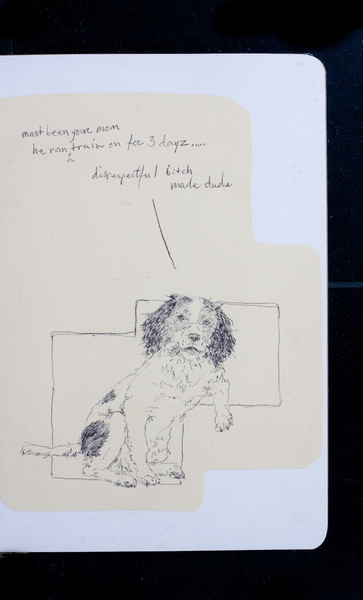 must been your mom
he ran a train on for 3 dayz.....
disrespectful bitch
made dude